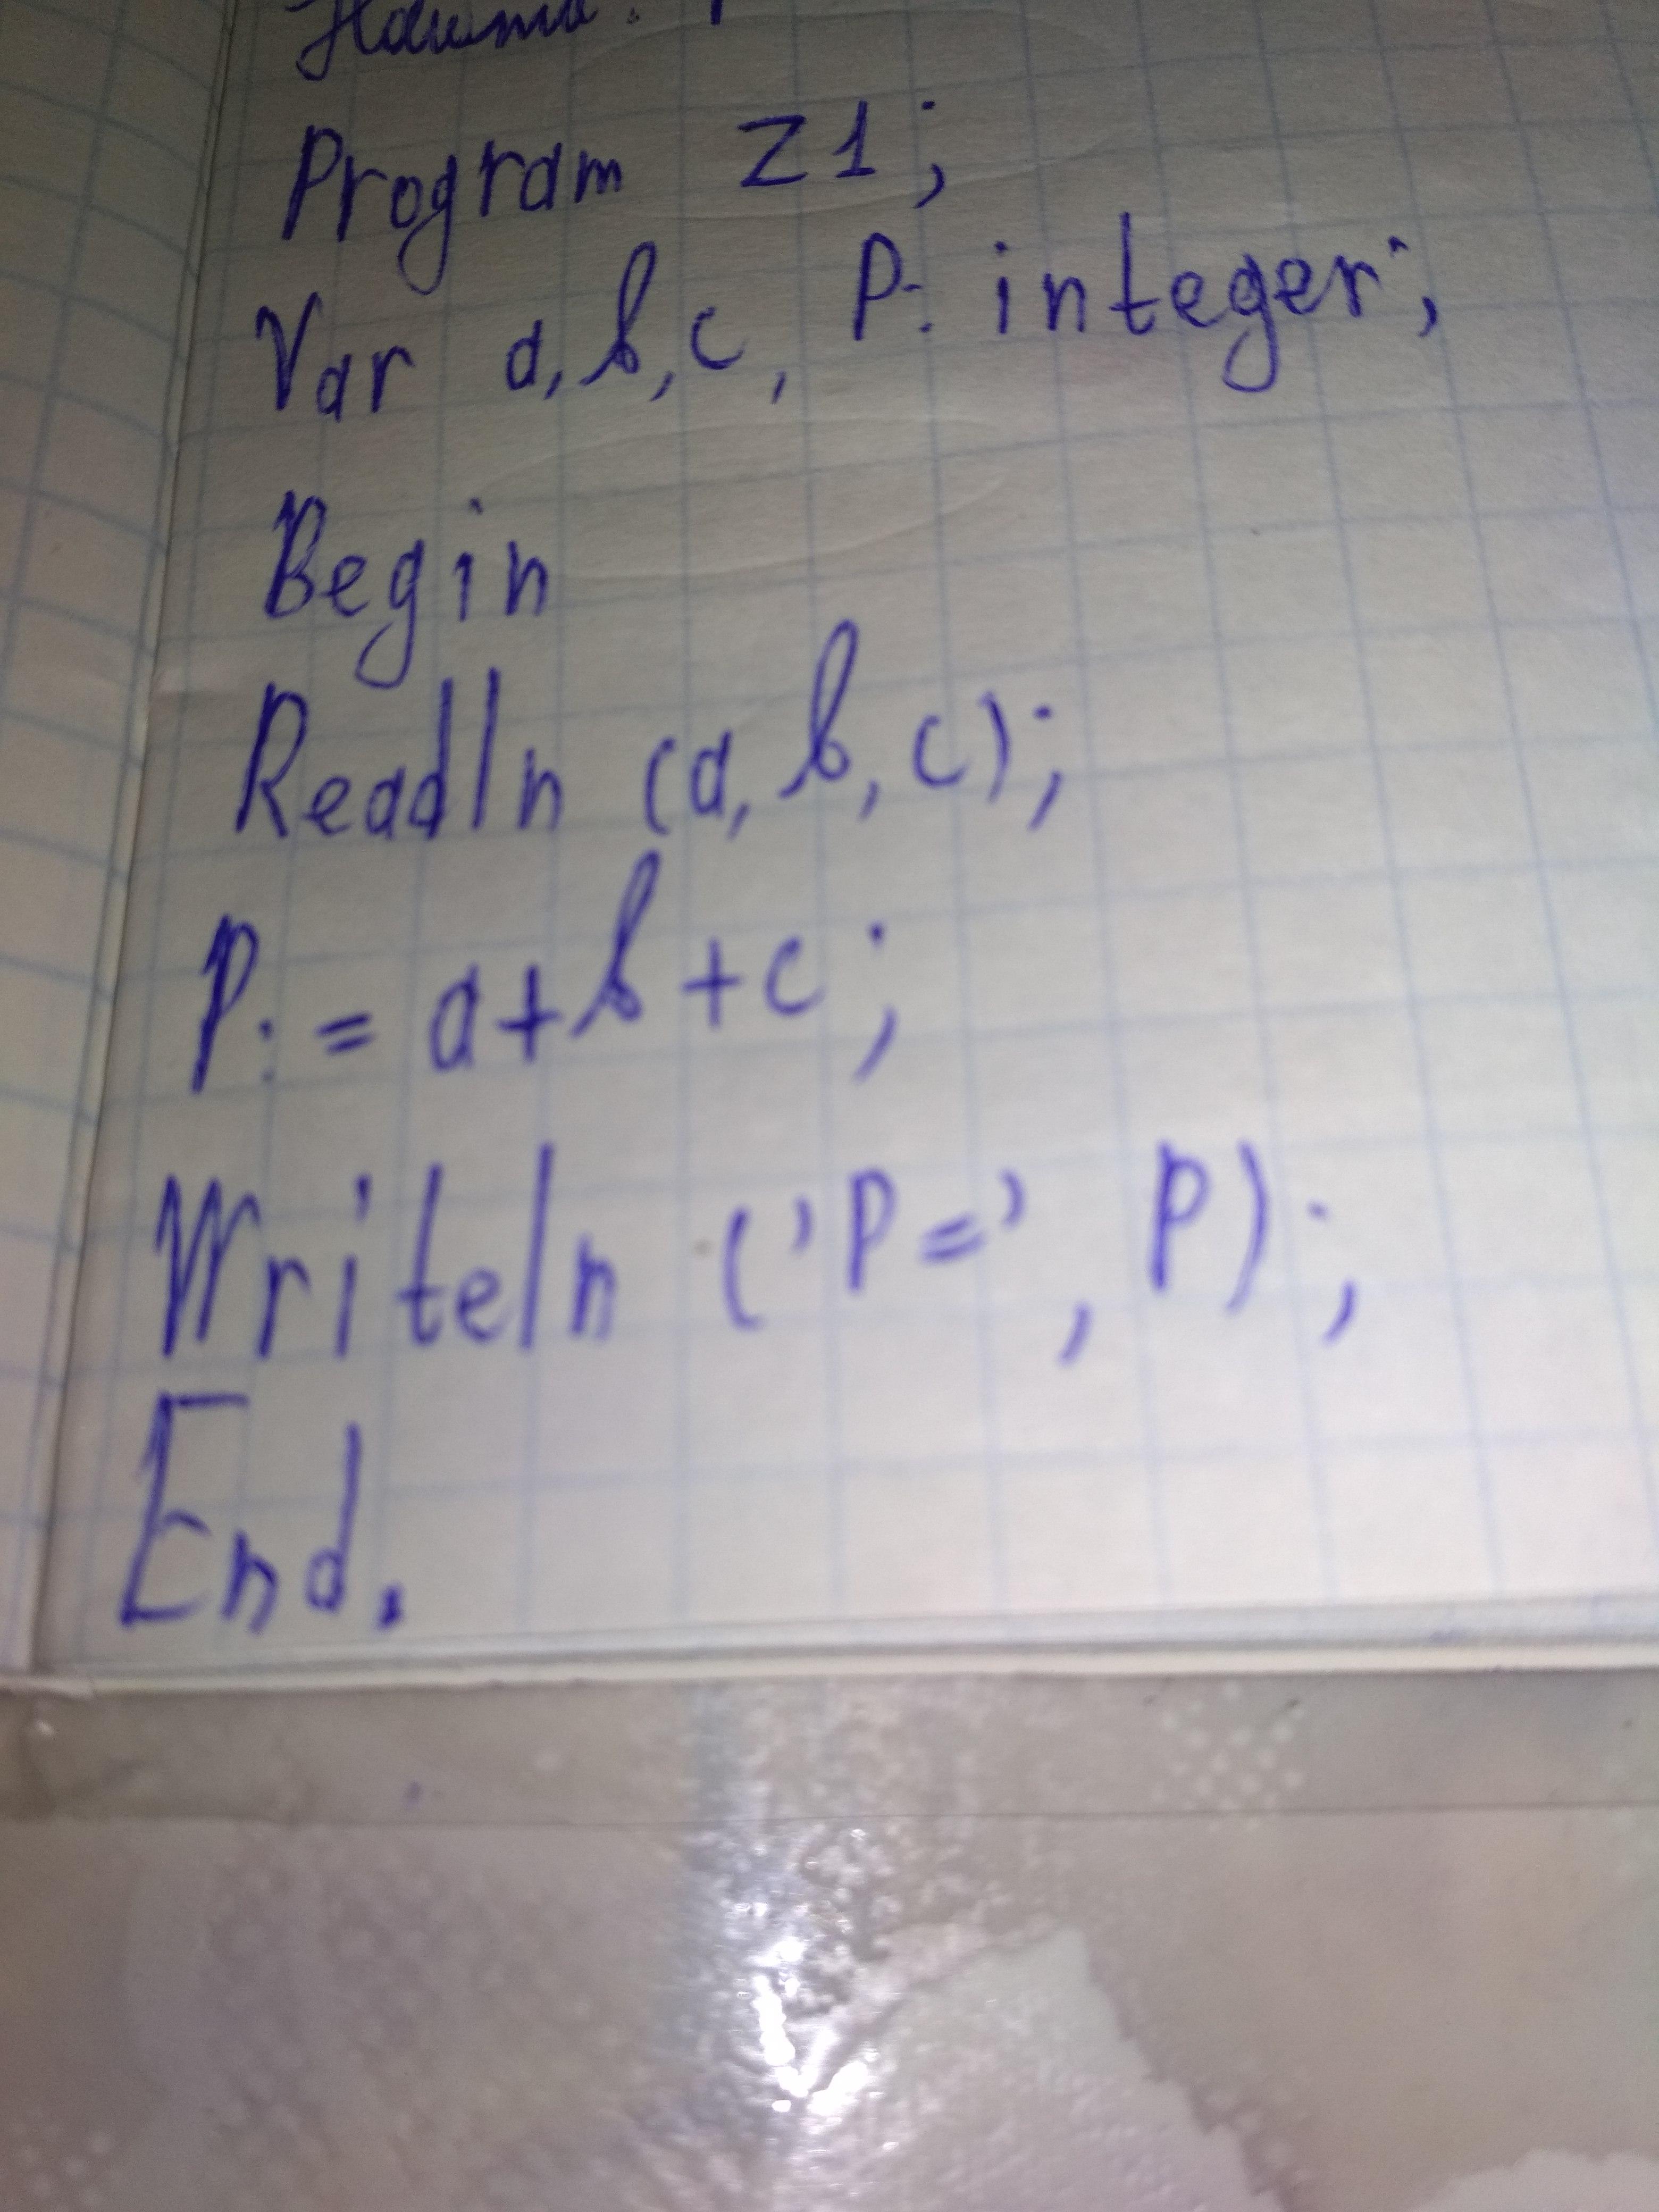 Program Z1;
Var a, b, c, P: integer;
Begin
Readln (a, b, c);
P := a + b + c;
Writeln ('P=', P);
End.